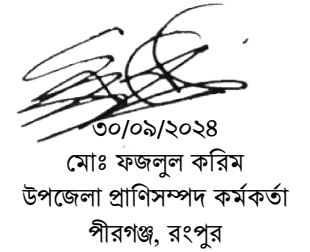 ৩০/০৯/২০২৪
মোঃ ফজলুল করিম
উপজেলা প্রাণিসম্পদ কর্মকর্তা
পীরগঞ্জ, রংপুর